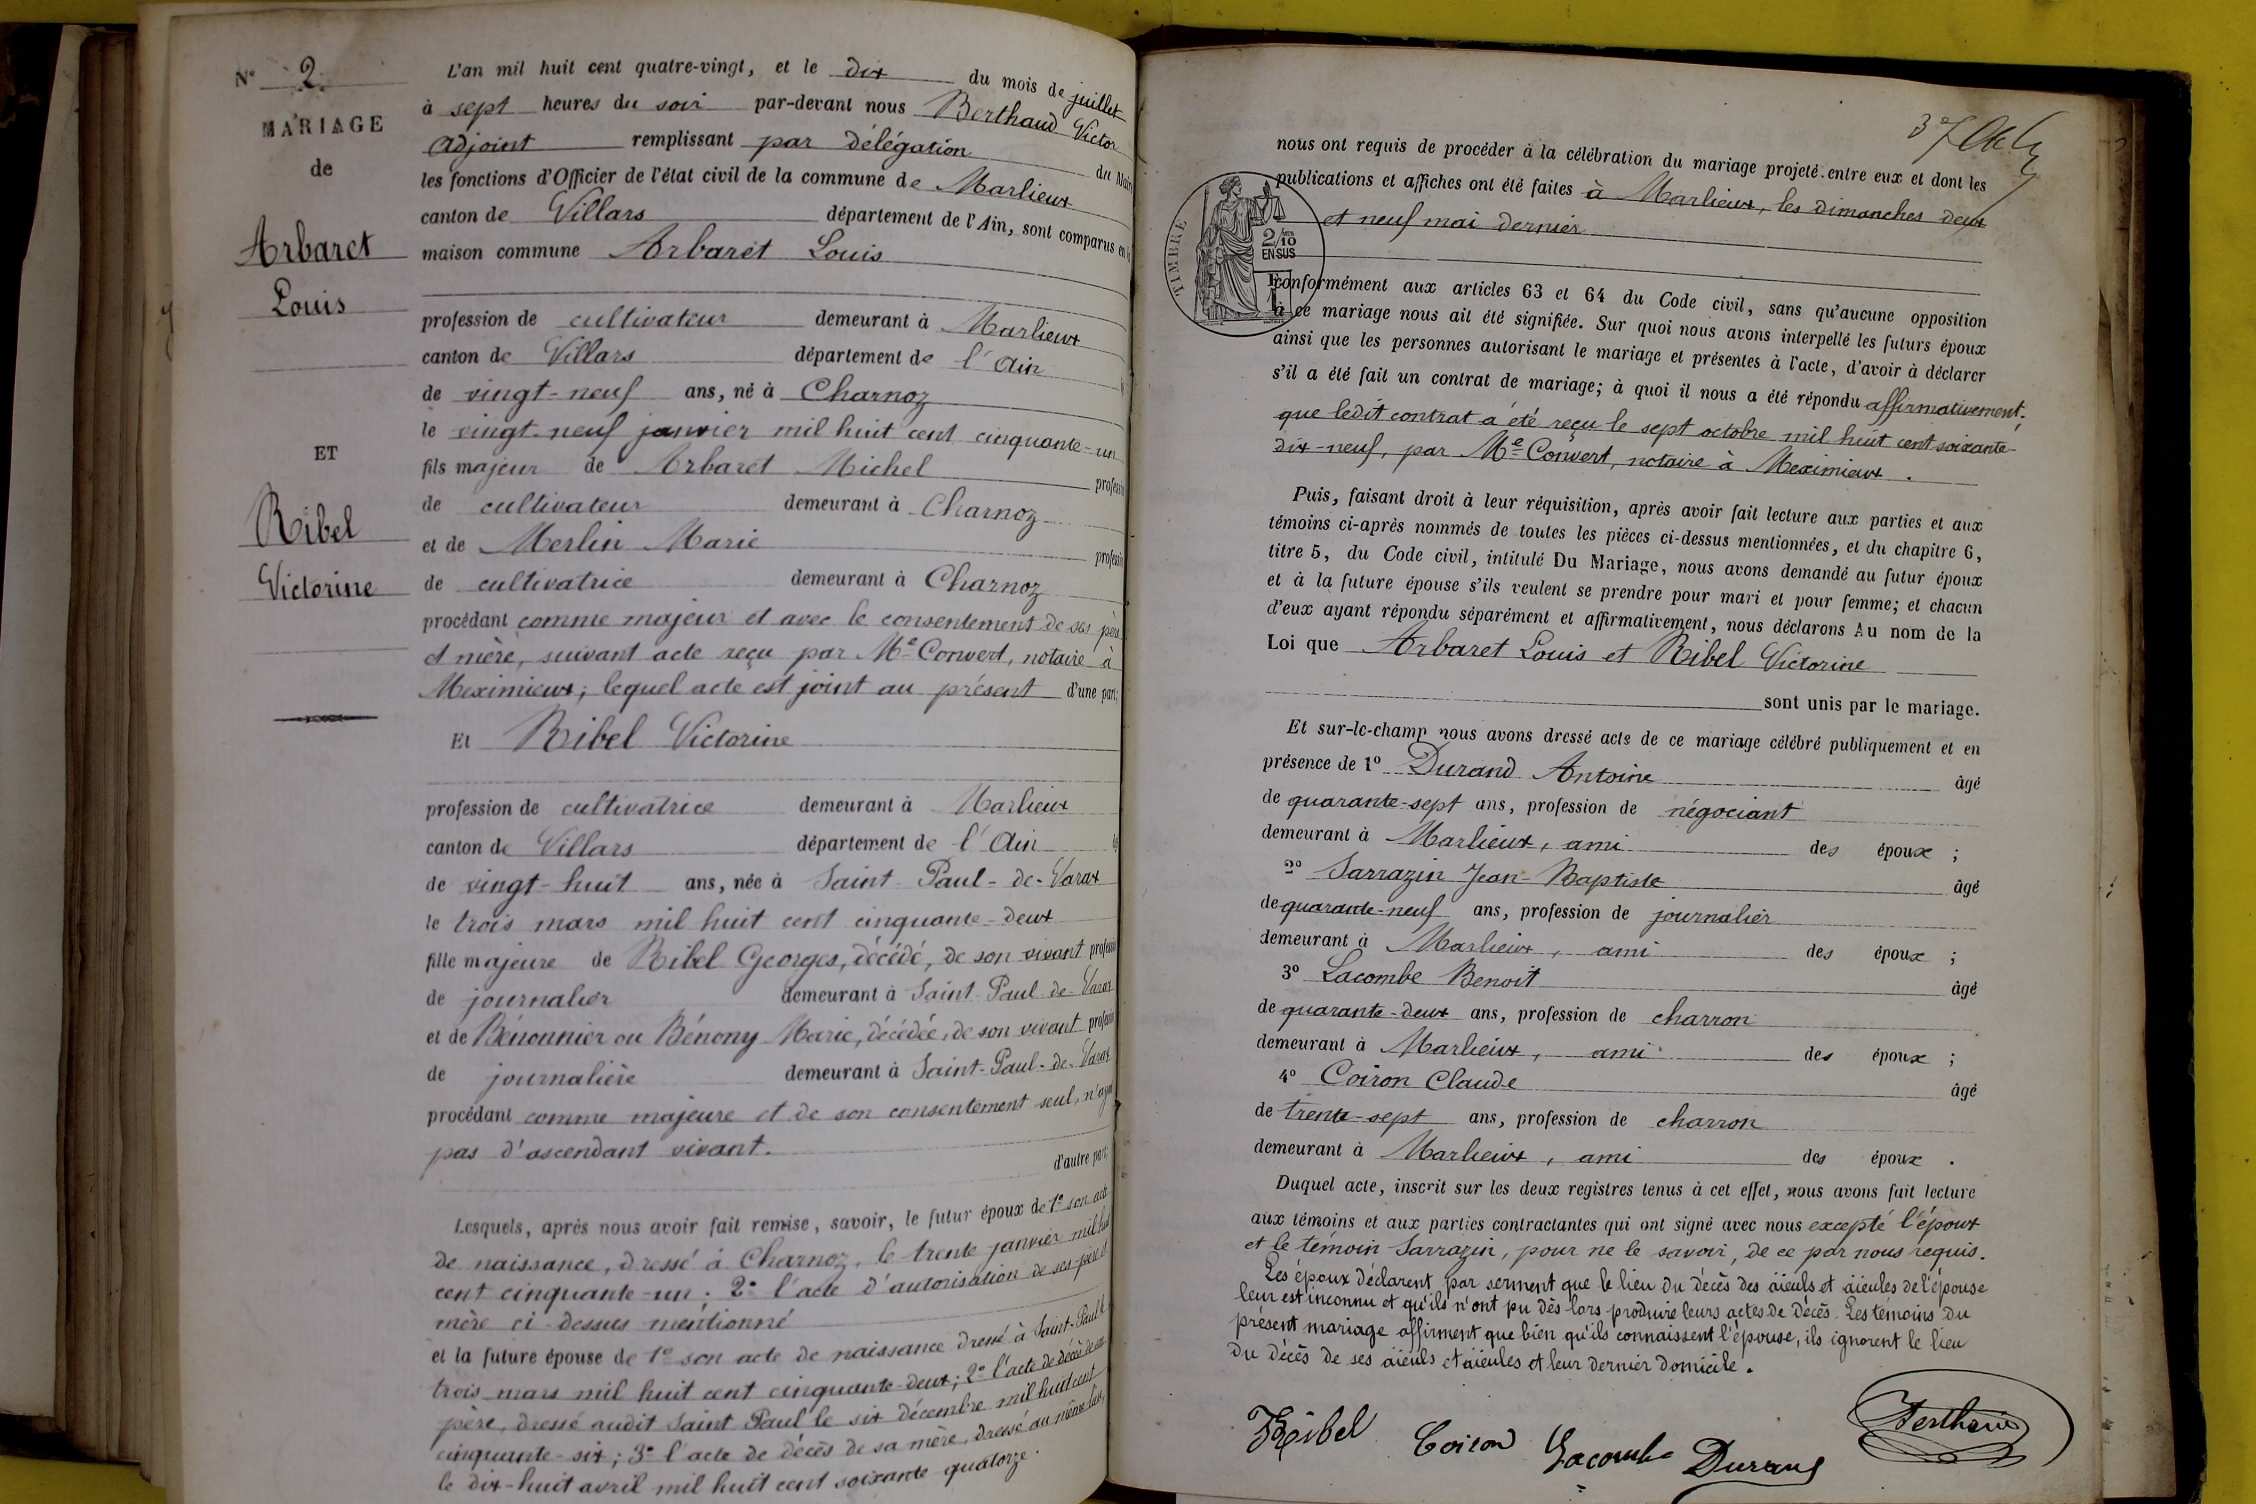 N° 2
MARIAGE
de
Arbaret
Louis
ET
Ribel
Victorine
L'an mil huit cent quatre-vingt, et le dix du mois de juillet
à sept heures du soir par-devant nous Berthaud Victor
adjoint remplissant par délégation du
les fonctions d'Officier de l'état civil de la commune de Marlieux
canton de Villars département de l'Ain, sont comparus en
maison commune Arbaret Louis
profession de cultivateur demeurant à Marlieux
canton de Villars département de l'Ain
de vingt-neuf ans, né à Charnoz
le vingt-neuf janvier mil huit cent cinquante-un
fils majeur de Arbaret Michel
de cultivateur demeurant à Charnoz
et de Merlin Marie
de cultivatrice demeurant à Charnoz
procédant comme majeur et avec le consentement de ses père
et mère, suivant acte reçu par Me Convert, notaire à
Meximieux; lequel acte est joint au présent d'une part;
Et Ribel Victorine
profession de cultivatrice demeurant à Marlieux
canton de Villars département de l'Ain
de vingt-huit ans, née à Saint-Paul-de-Varax
le trois mars mil huit cent cinquante-deux
fille majeure de Ribel Georges, décédé, de son vivant
de journalier demeurant à Saint-Paul-de-Varax
et de Bénonnier ou Bénony Marie, décédée, de son vivant
de journalière demeurant à Saint-Paul-de-Varax
procédant comme majeure et de son consentement seul, n'ayant
pas d'ascendant vivant.
d'autre part.
Lesquels, après nous avoir fait remise, savoir, le futur époux de 1° son acte
de naissance, dressé à Charnoz, le trente janvier mil huit
cent cinquante-un; 2° l'acte d'autorisation de ses père et
mère ci-dessus mentionné
et la future épouse de 1° son acte de naissance dressé à Saint-Paul le
trois mars mil huit cent cinquante-deux; 2° l'acte de décès de son
père, dressé audit Saint Paul le six décembre mil huit cent
cinquante-six; 3° l'acte de décès de sa mère, dressé au même lieu,
le dix-huit avril mil huit cent soixante-quatorze.
nous ont requis de procéder à la célébration du mariage projeté entre eux et dont les
publications et affiches ont été faites à Marlieux, les dimanches deux
et neuf mai dernier
TIMBRE
2/10
EN SUS
conformément aux articles 63 et 64 du Code civil, sans qu'aucune opposition
à ce mariage nous ait été signifiée. Sur quoi nous avons interpellé les futurs époux
ainsi que les personnes autorisant le mariage et présentes à l'acte, d'avoir à déclarer
s'il a été fait un contrat de mariage; à quoi il nous a été répondu affirmativement;
que ledit contrat a été reçu le sept octobre mil huit cent soixante-
dix-neuf, par Me Convert, notaire à Meximieux.
Puis, faisant droit à leur réquisition, après avoir fait lecture aux parties et aux
témoins ci-après nommés de toutes les pièces ci-dessus mentionnées, et du chapitre 6,
titre 5, du Code civil, intitulé Du Mariage, nous avons demandé au futur époux
et à la future épouse s'ils veulent se prendre pour mari et pour femme; et chacun
d'eux ayant répondu séparément et affirmativement, nous déclarons Au nom de la
Loi que Arbaret Louis et Ribel Victorine
sont unis par le mariage.
Et sur-le-champ nous avons dressé acte de ce mariage célébré publiquement et en
présence de 1° Durand Antoine âgé
de quarante-sept ans, profession de négociant
demeurant à Marlieux, ami des époux ;
2° Sarrazin Jean-Baptiste âgé
de quarante-neuf ans, profession de journalier
demeurant à Marlieux, ami des époux ;
3° Lacombe Benoit âgé
de quarante-deux ans, profession de charron
demeurant à Marlieux, ami des époux ;
4° Coiron Claude âgé
de trente-sept ans, profession de charron
demeurant à Marlieux, ami des époux .
Duquel acte, inscrit sur les deux registres tenus à cet effet, nous avons fait lecture
aux témoins et aux parties contractantes qui ont signé avec nous excepté l'époux
et le témoin Sarrazin, pour ne le savoir, de ce par nous requis.
Les époux déclarent par serment que le lieu du décès des aïeuls et aïeules de l'épouse
leur est inconnu et qu'ils n'ont pu dès lors produire leurs actes de décès. Les témoins du
présent mariage affirment que bien qu'ils connaissent l'épouse, ils ignorent le lieu
du décès de ses aïeuls et aïeules et leur dernier domicile.
Ribel Coiron Lacombe Durand Berthaud